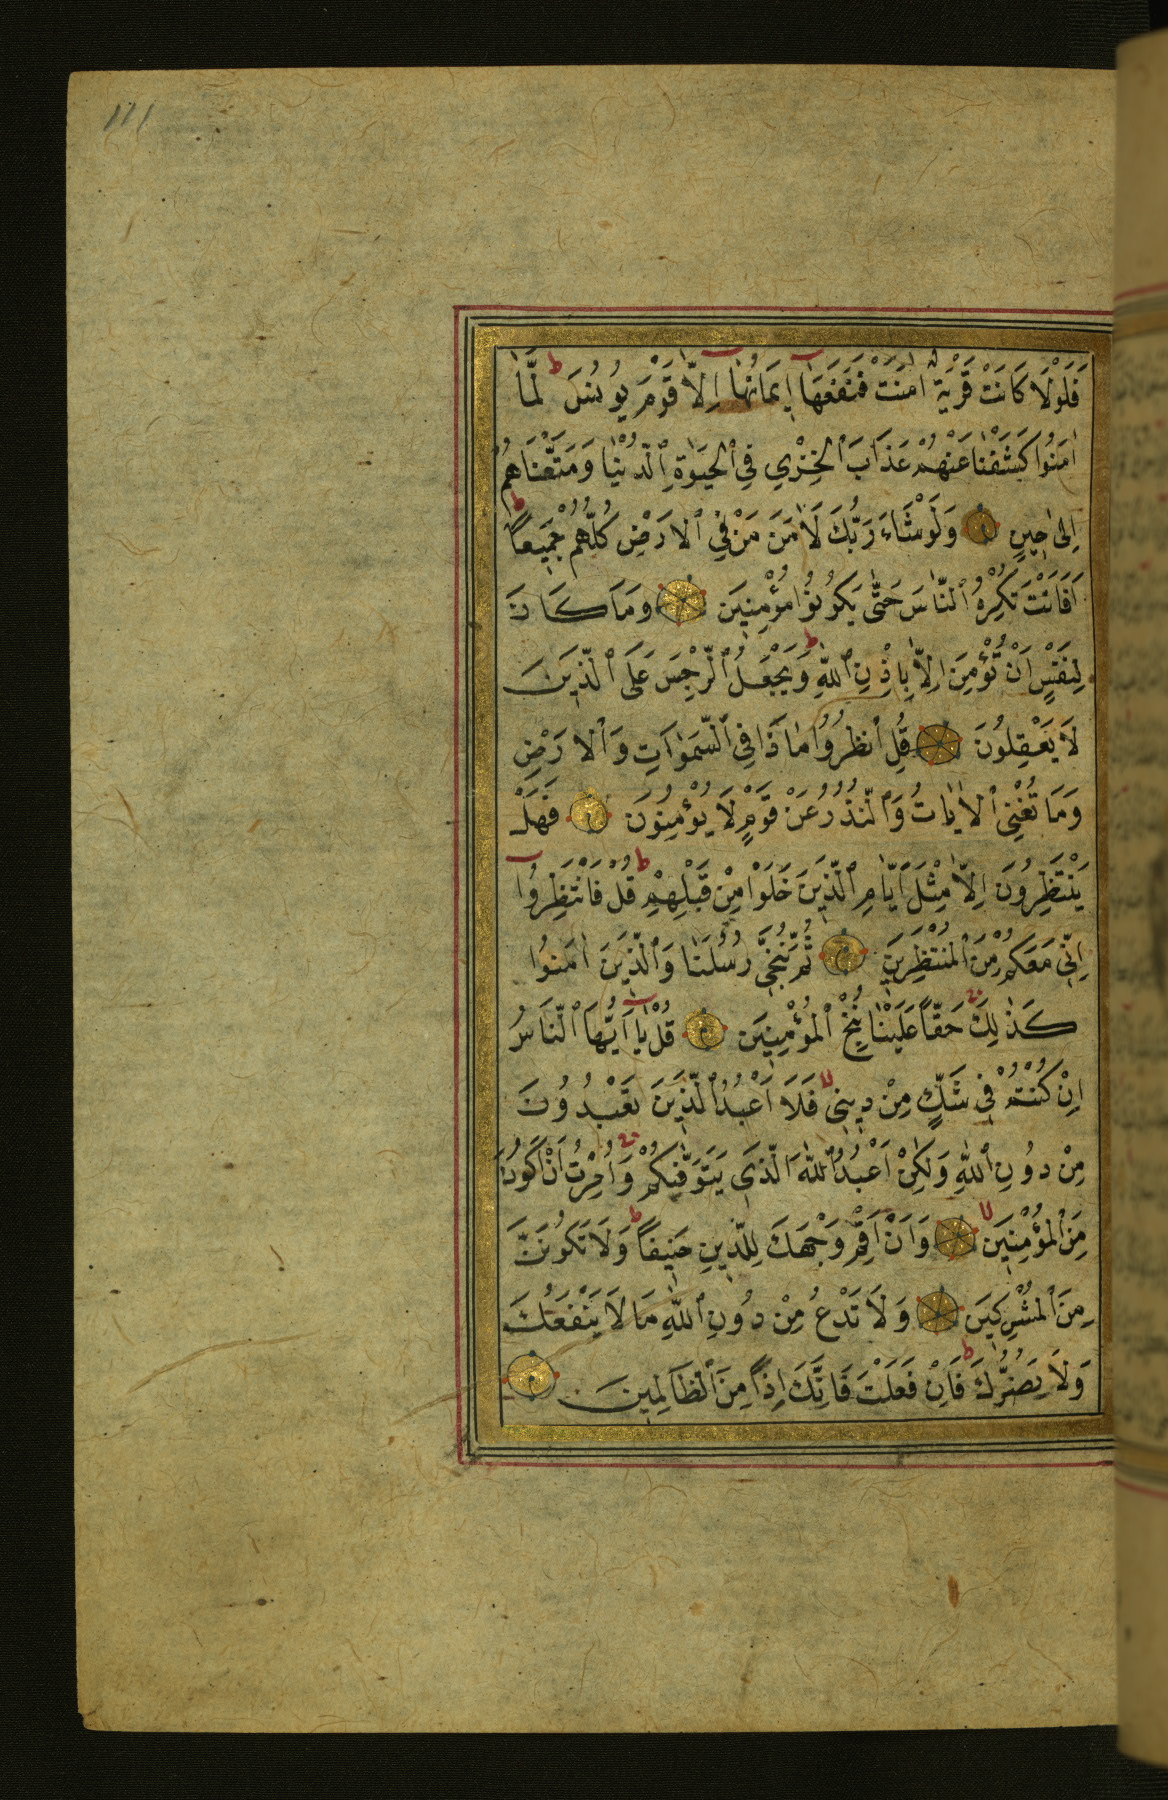 111
فَلَوْلَا كَانَتْ قَرْيَةٌ اٰمَنَتْ فَنَفَعَهَا اِيمَانُهَا اِلَّا قَوْمَ يُونُسَ ط لَمَّا
اٰمَنُوا كَشَفْنَا عَنْهُمْ عَذَابَ الْخِزْيِ فِي الْحَيٰوةِ الدُّنْيَا وَمَتَّعْنَاهُمْ
اِلٰى حِينٍ وَلَوْ شَاءَ رَبُّكَ لَاٰمَنَ مَنْ فِي الْاَرْضِ كُلُّهُمْ جَمِيعًا ط
اَفَاَنْتَ تُكْرِهُ النَّاسَ حَتّٰى يَكُونُوا مُؤْمِنِينَ وَمَا كَانَ
لِنَفْسٍ اَنْ تُؤْمِنَ اِلَّا بِاِذْنِ اللّٰهِ ط وَيَجْعَلُ الرِّجْسَ عَلَى الَّذِينَ
لَا يَعْقِلُونَ قُلِ انْظُرُوا مَاذَا فِي السَّمٰوَاتِ وَالْاَرْضِ
وَمَا تُغْنِي الْاٰيَاتُ وَالنُّذُرُ عَنْ قَوْمٍ لَا يُؤْمِنُونَ فَهَلْ
يَنْتَظِرُونَ اِلَّا مِثْلَ اَيَّامِ الَّذِينَ خَلَوْا مِنْ قَبْلِهِمْ ط قُلْ فَانْتَظِرُوا
اِنِّي مَعَكُمْ مِنَ الْمُنْتَظِرِينَ ثُمَّ نُنَجِّي رُسُلَنَا وَالَّذِينَ اٰمَنُوا
كَذٰلِكَ حَقًّا عَلَيْنَا نُنْجِ الْمُؤْمِنِينَ قُلْ يَا اَيُّهَا النَّاسُ
اِنْ كُنْتُمْ فِي شَكٍّ مِنْ دِينِي لا فَلَا اَعْبُدُ الَّذِينَ تَعْبُدُونَ
مِنْ دُونِ اللّٰهِ وَلٰكِنْ اَعْبُدُ اللّٰهَ الَّذِي يَتَوَفّٰيكُمْ وَاُمِرْتُ اَنْ اَكُونَ
مِنَ الْمُؤْمِنِينَ لا وَاَنْ اَقِمْ وَجْهَكَ لِلدِّينِ حَنِيفًا ط وَلَا تَكُونَنَّ
مِنَ الْمُشْرِكِينَ وَلَا تَدْعُ مِنْ دُونِ اللّٰهِ مَا لَا يَنْفَعُكَ
وَلَا يَضُرُّكَ ط فَاِنْ فَعَلْتَ فَاِنَّكَ اِذًا مِنَ الظَّالِمِينَ